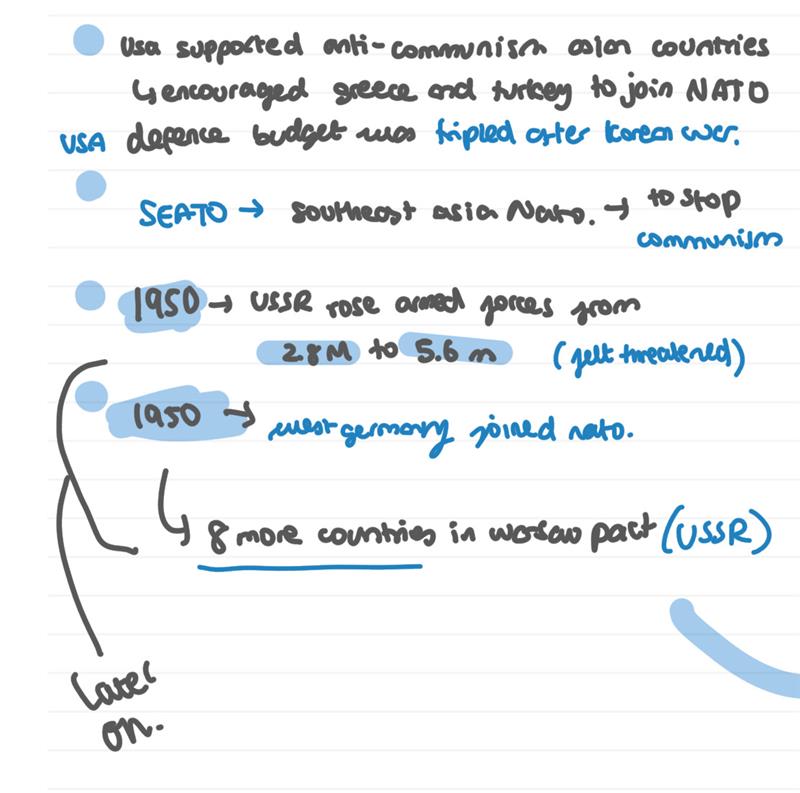 Usa supported anti-communism asian countries
↳ encouraged greece and turkey to join NATO
USA defence budget was tripled after korean war.
SEATO → southeast asia Nato. → to stop
communism
1950 → USSR rose armed forces from
2.8M to 5.6m (felt threatened)
1950 → west germany joined nato.
↳ 8 more countries in warsaw pact (USSR)
Later
on.